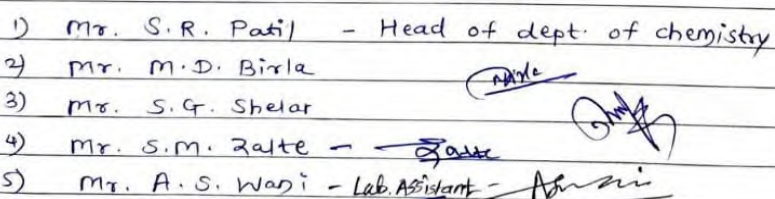 1) Mr. S.R. Patil - Head of dept. of chemistry
2) Mr. M.D. Birla
3) Mr. S.G. Shelar
4) Mr. S.M. Zalte - Zalte
5) Mr. A.S. Wani - Lab. Assistant -